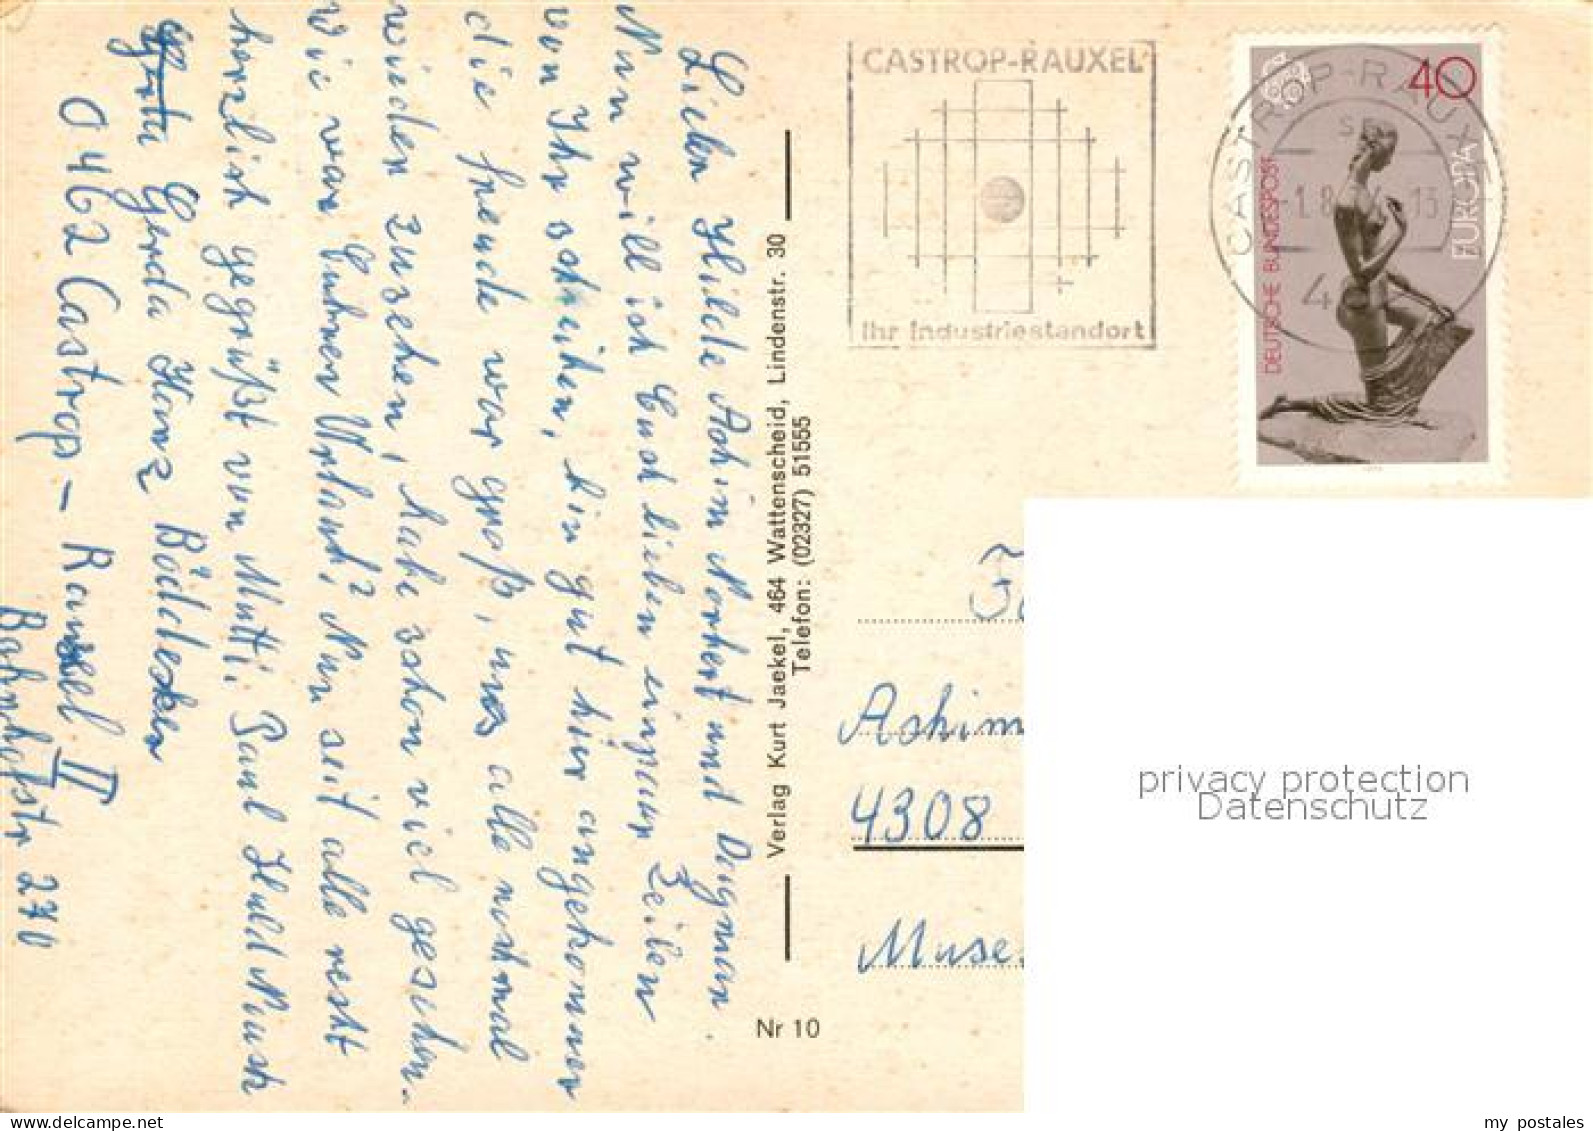 Lieben Hilde Achim Norbert und Dagmar.
Nun will ich Euch lieben ein paar Zeilen
von Ihr schreiben, bin gut hier angekommen
die freude war groß, uns alle nochmal
wieder zusehen, habe schon viel gesehen.
Wie war Euhren Urlaub? Nun seit alle recht
herzlich gegrüßt von Mutti. Paul Huld
Gerda Hanz
0462 Castrop - Rauxel II
Bahnhofstr 270
Verlag Kurt Jaekel, 464 Wattenscheid, Lindenstr. 30
Telefon: (02327) 51555
Nr 10
CASTROP-RAUXEL
Ihr Industriestandort
CASTROP-RAUXEL
40
DEUTSCHE BUNDESPOST
EUROPA
Achim
4308
privacy protection
Datenschutz
my postales